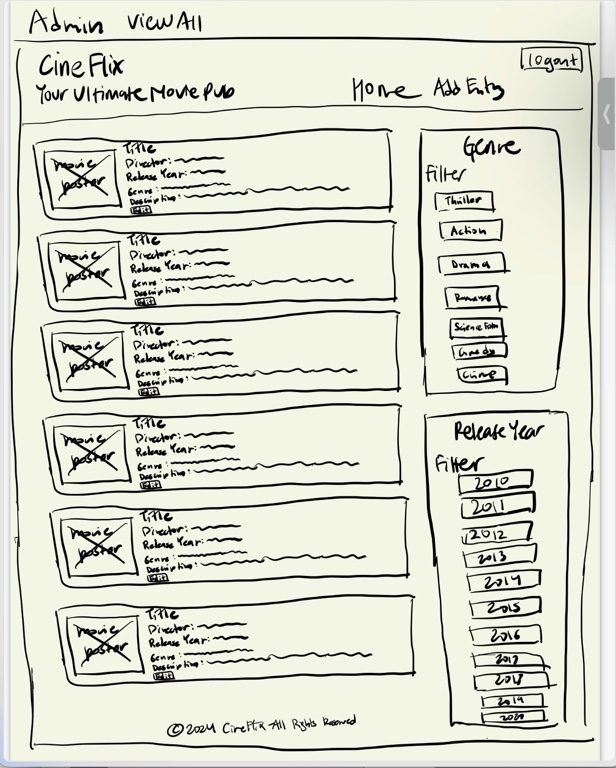 Admin View All
logout
CineFlix
Your Ultimate Movie Pub
Home Add Entry
movie poster
Title
Director:
Release Year:
Genre:
Description:
Edit
movie poster
Title
Director:
Release Year:
Genre:
Description:
Edit
movie poster
Title
Director:
Release Year:
Genre:
Description:
Edit
movie poster
Title
Director:
Release Year:
Genre:
Description:
Edit
movie poster
Title
Director:
Release Year:
Genre:
Description:
Edit
movie poster
Title
Director:
Release Year:
Genre:
Description:
Edit
Genre
Filter
Thriller
Action
Drama
Romance
Science Fiction
Comedy
Crime
Release Year
Filter
2010
2011
2012
2013
2014
2015
2016
2017
2018
2019
2020
©2024 CineFlix All Rights Reserved